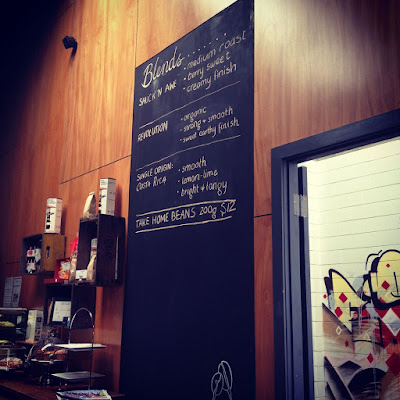 Blends.......
SHUCK 'N AWE • medium roast
• berry sweet
• creamy finish
REVOLUTION • organic
• strong & smooth
• sweet earthy finish
SINGLE ORIGIN: • smooth
COSTA RICA • lemon-lime
• bright & tangy
TAKE HOME BEANS 200g $12